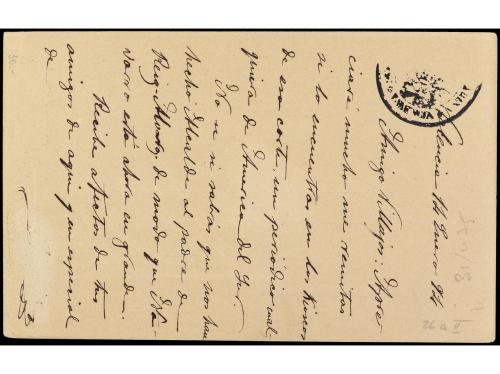 Valencia 14 Enero 94
Amigo Villajos: Apre-
ciaré mucho me remitas
si lo encuentras en los Kioscos
de esa corte, un periódico cual-
quiera de America del Sur.
No se si sabrás que nos han
hecho Alcalde al padre de
Reig de modo que
varro está ahora en grande.
Recibe afectos de tus
amigos de aqui y en especial
de
26 a